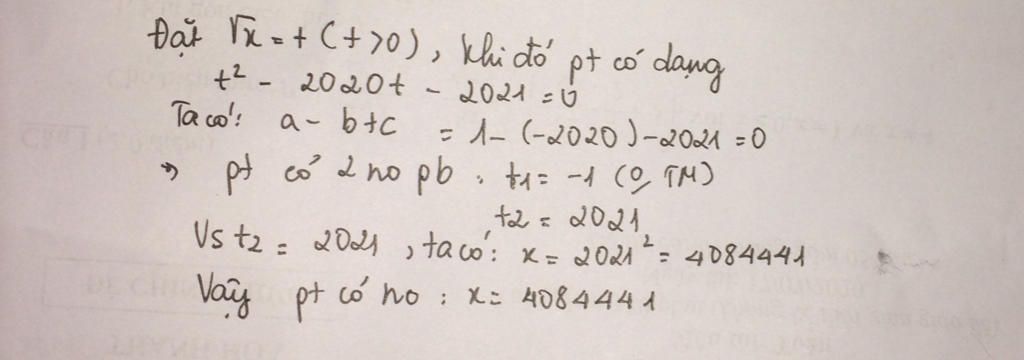 Đặt √x = t (t > 0), khi đó pt có dạng
t² - 2020t - 2021 = 0
Ta có: a - b + c = 1 - (-2020) - 2021 = 0
→ pt có 2 no pb : t1 = -1 (0, TM)
t2 = 2021
Vs t2 = 2021, ta có: x = 2021² = 4084441
Vậy pt có no : x = 4084441